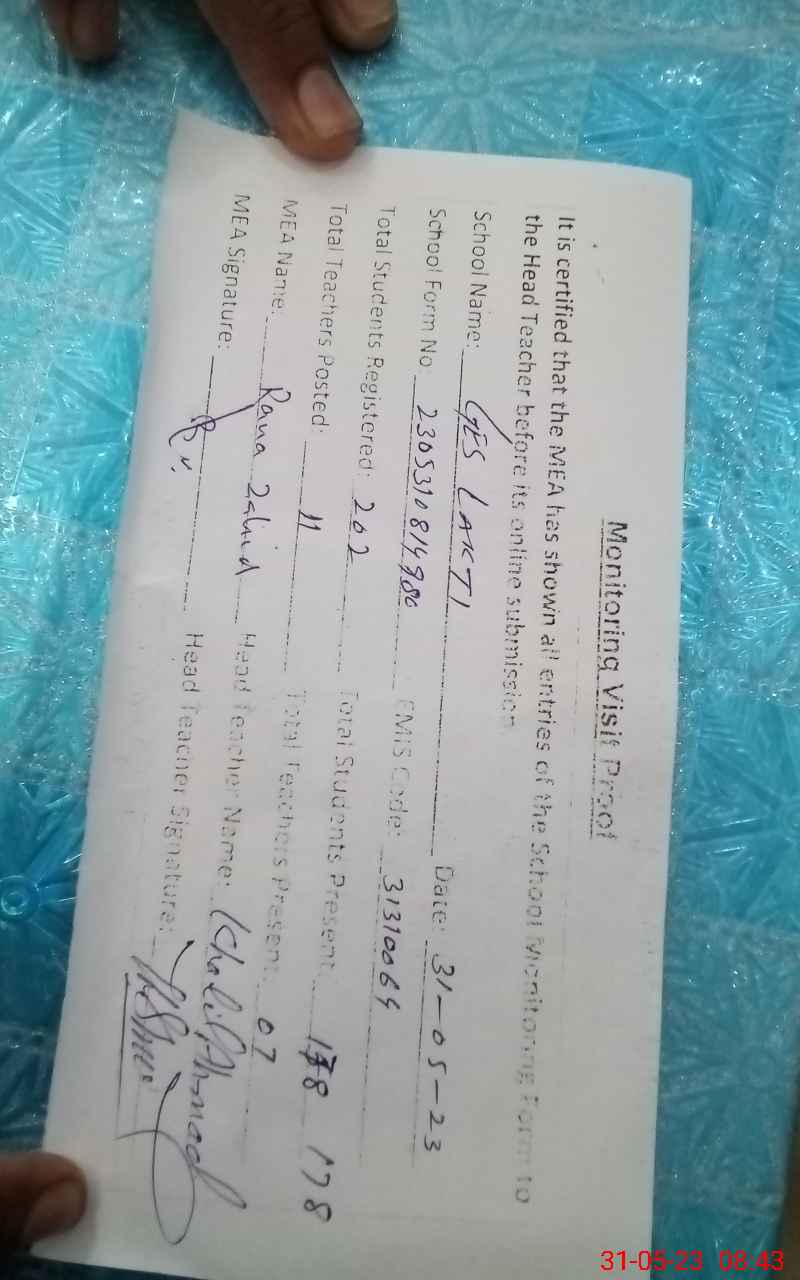 Monitoring Visit Proof
It is certified that the MEA has shown all entries of the School Monitoring Form to
the Head Teacher before its online submission.
School Name: GES LAKTI Date: 31-05-23
School Form No: 230531081498 EMIS Code: 31310069
Total Students Registered: 202 Total Students Present: 178 178
Total Teachers Posted: 11 Total Teachers Present: 07
MEA Name: Rana Zahid Head Teacher Name: Khalil Ahmad
MEA Signature: Head Teacher Signature:
31-05-23 08:43